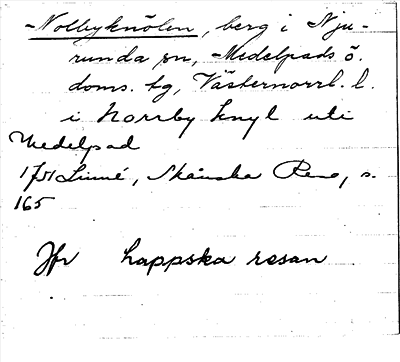 -Nolbyknölen, berg i Nju-
runda sn, Medelpads ö.
doms. tg, Västernorrl. l.
i Norrby knyl uti
Medelpad
1751 Linné, Skånska Resa, s.
165
Jfr Lappska resan